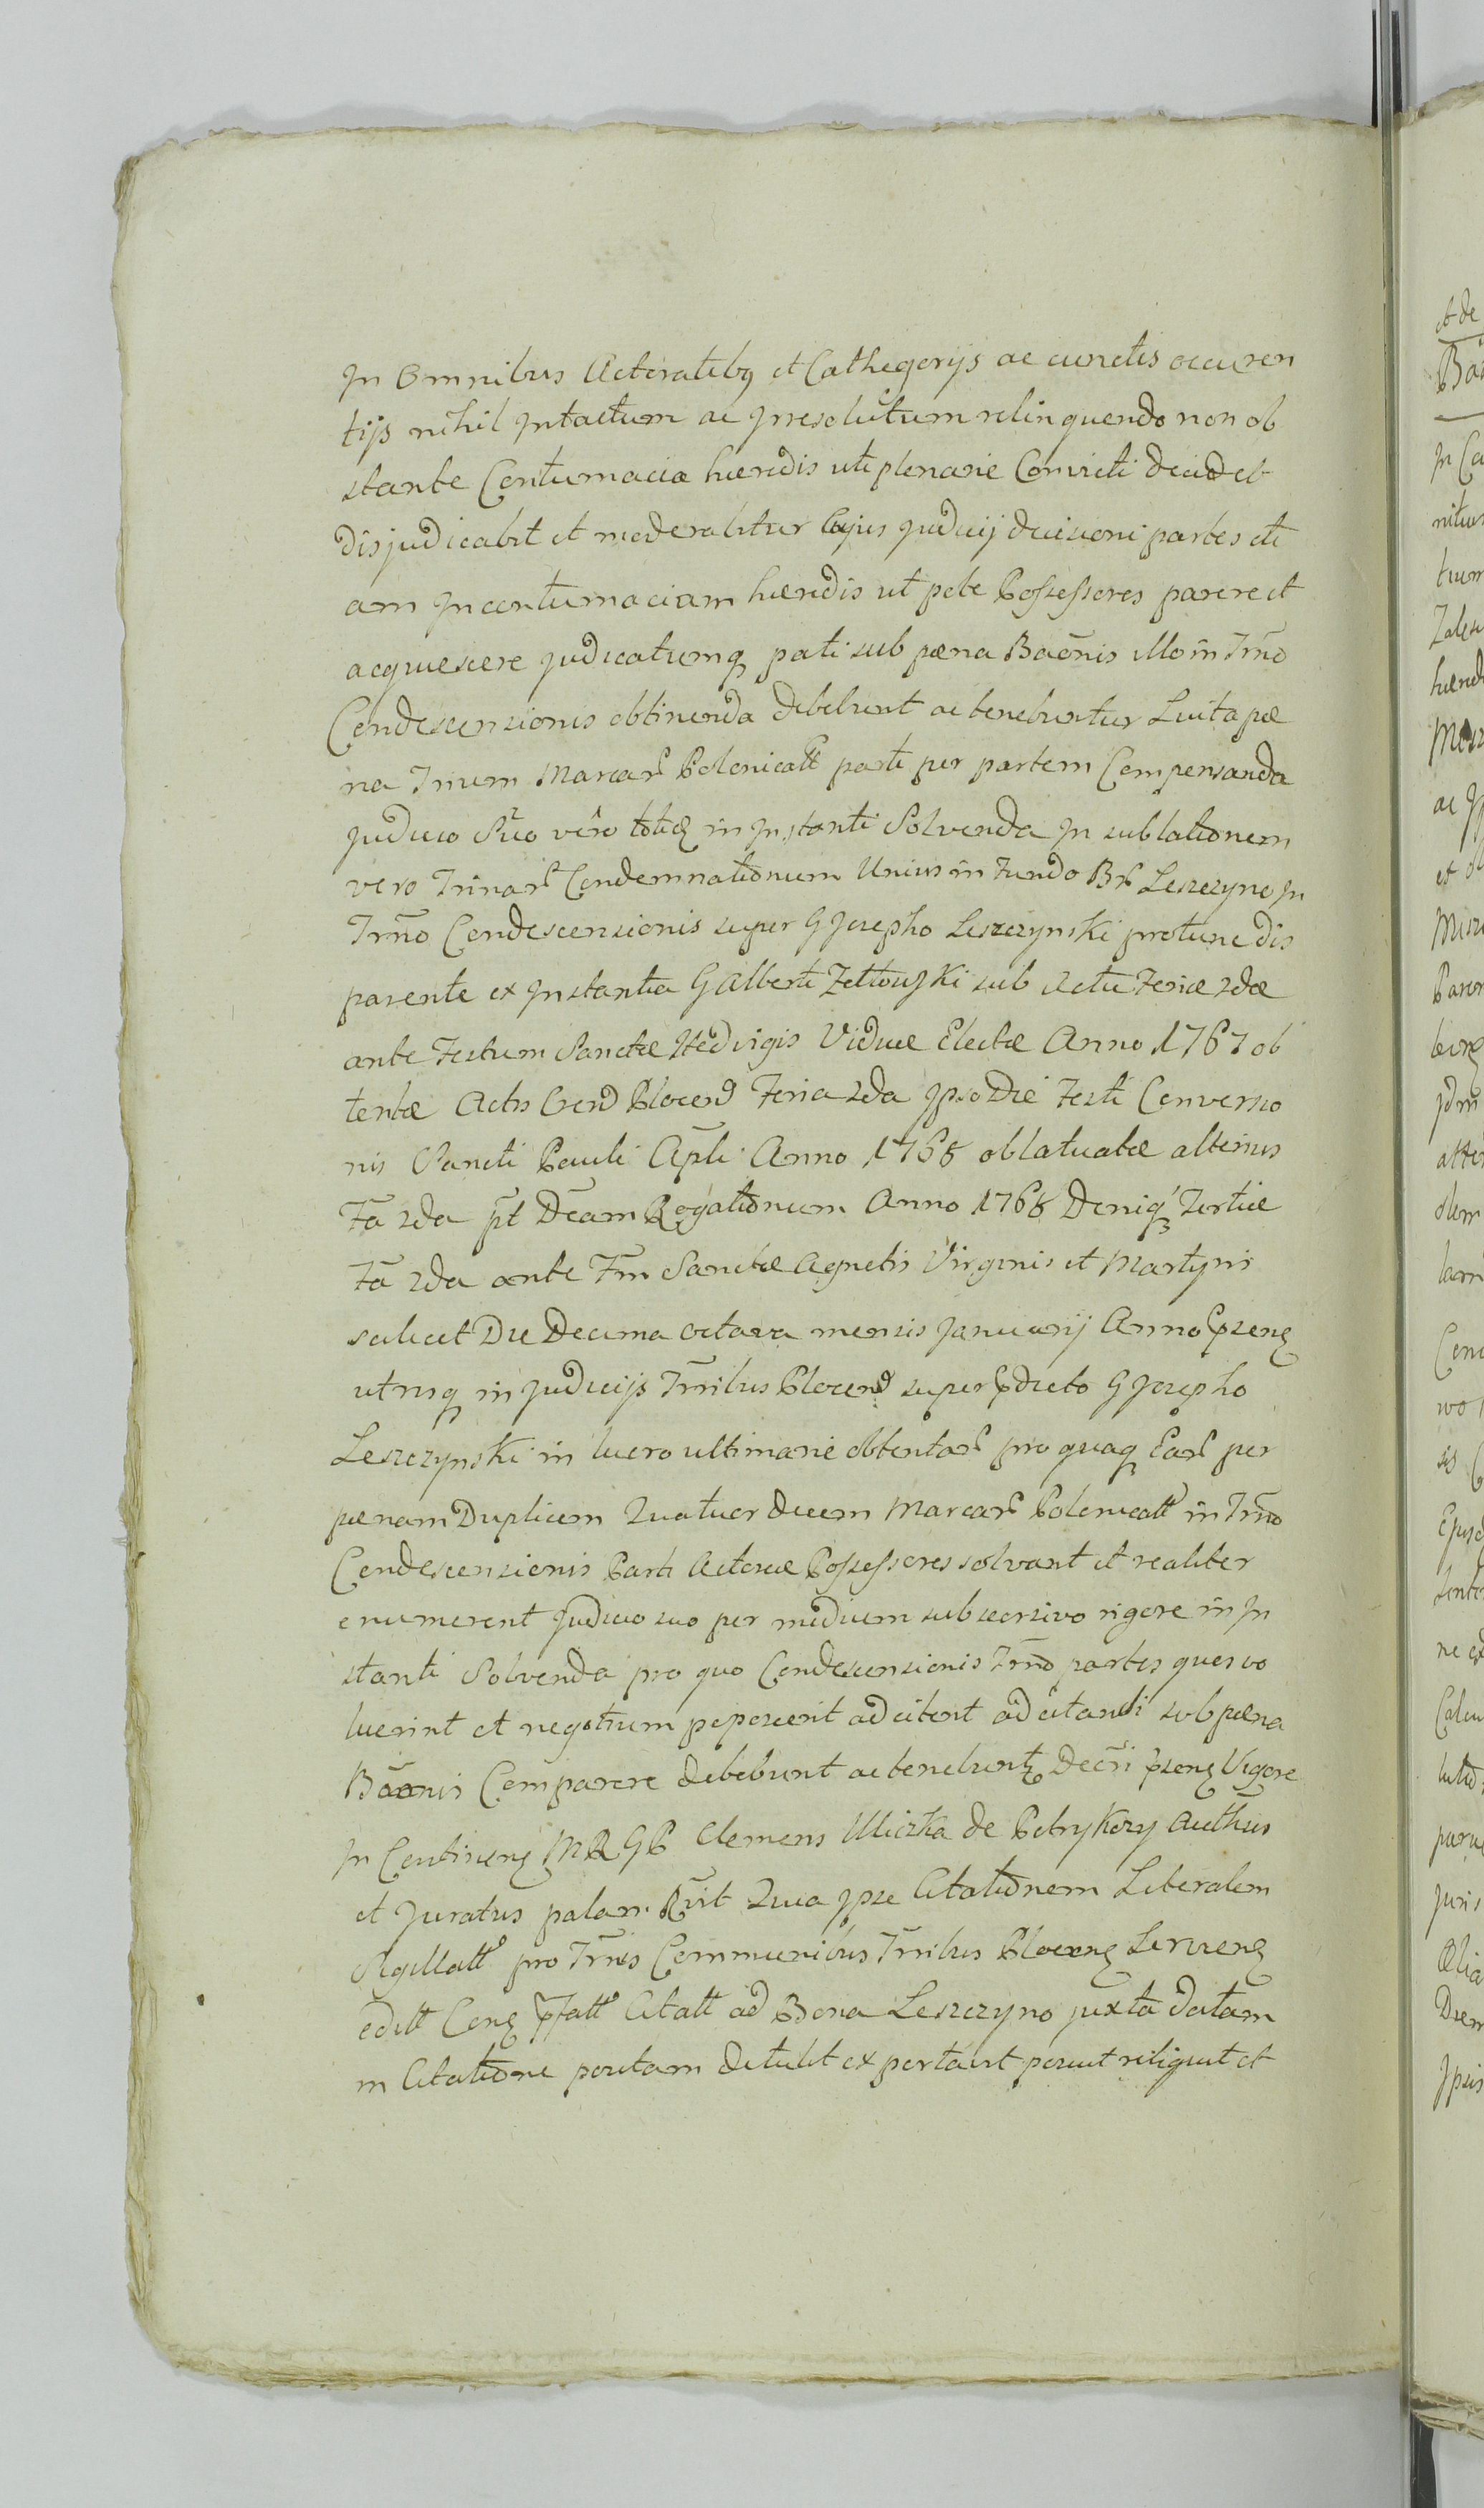 In Omnibus Actoratibq et Cathegorijs ac cunctis occuren
tijs nihil Intactum ac Irresolutum relinquendo non ob
stante Contumacia hæredis uti plenarie Convicti decidet
disjudicabit et moderabitur Cujus Judicij decisioni partes eti
am In contumaciam hæredis ut pote Possessores parere et
acquiescere Judicatumq pati sub pæna Baõnis illo in Trnõ
Condescensionis obtinenda debebunt ac tenebuntur Luita pæ
na Trium Marcar Polonicall parti per partem Compensanda
Judicio Suo vero totid in Instanti Solvenda In sublationem
vero Trinar Condemnationum Unius in Fundo Br Leszczyno In
Trnõ Condescensionis super G Josepho Leszczynski protunc dis
parente ex Instantia G Alberti Zettowski sub Actu Feriæ 2dæ
ante Festum Sanctæ Hedvigis Viduæ Electæ Anno 1767 ob
tentæ Actis Cren Plocen Feria 2da Ipso Die Festi Conversio
nis Sancti Pauli Apli Anno 1768 oblatuatæ alterius
Fa 2da pt Dcam Rogationum Anno 1768 Deniq Tertiæ
Fa 2da ante Fm Sanctæ Agnetis Virginis et Martyris
scilicet Die Decima octava mensis Januarij Anno pseng
utrisq in Judicijs Trribus Plocen super pdicto G Josepho
Leszczynski in lucro ultimarie obtentar pro quaq Ear per
pænam Duplicem Quatuordecem Marcar Polonicall in Trnõ
Condescensionis Parti Actoreæ Possessores solvant et realiter
enumerent Judicio suo per medium subseorsivo rigore in In
stanti Solvenda pro quo Condescensionis Trnõ partes ques vo
luerint et negotium poposcerit adcitent adcitandi sub pæna
Baõnis Comparere debebunt ac tenebuntz Decri pseng Vigore
In Contineng MR GP Clemens Uliczka de Petrykozy Authus
et Juratus palam Rvit Quia Ipse Citationem Liberalem
Sigillatt pro Trnis Communibus Trribus Ploceng
editt Ceng pfatt Citatt ad Bona Leszczyno juxta datam
in Citatione positam detulit exportavit posuit reliquit et